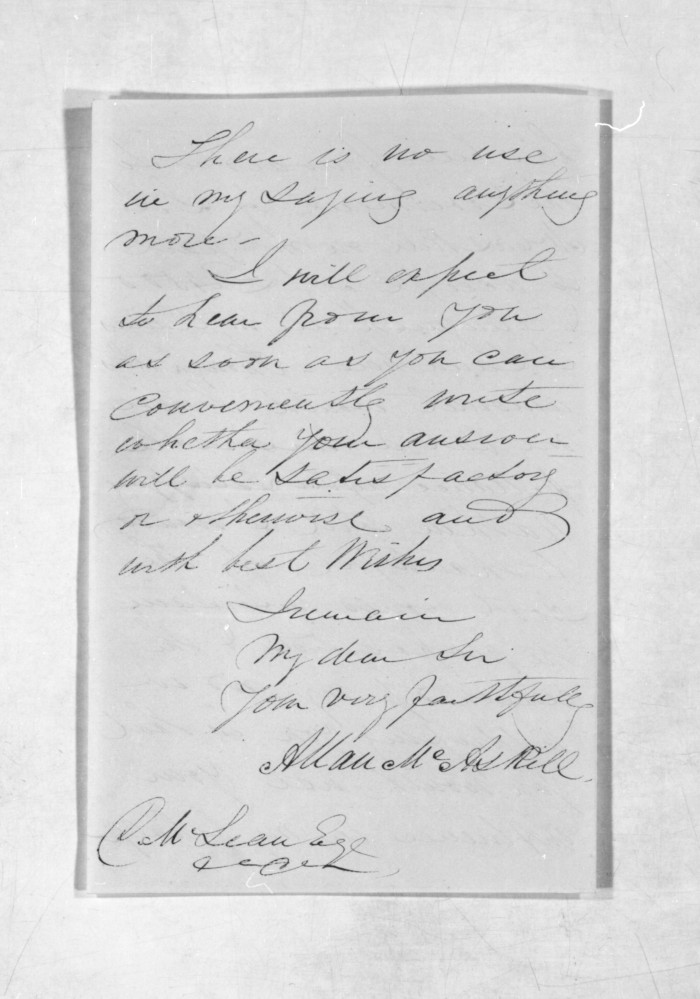 There is no use
in my saying anything
more -
I will expect
to hear from you
as soon as you can
conveniently write
whether your answer
will be satisfactory
or otherwise and
with best Wishes
I remain
My dear Sir
Your very faithfully
Allan McAskill.
McLean Esqr